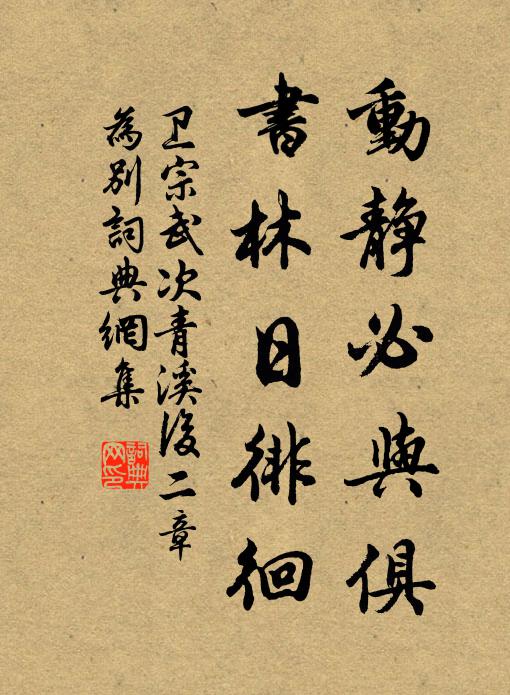 動靜必與俱
書林日徘徊
卫宗武次青溪後二章
為別詞典網集
詞典
网印